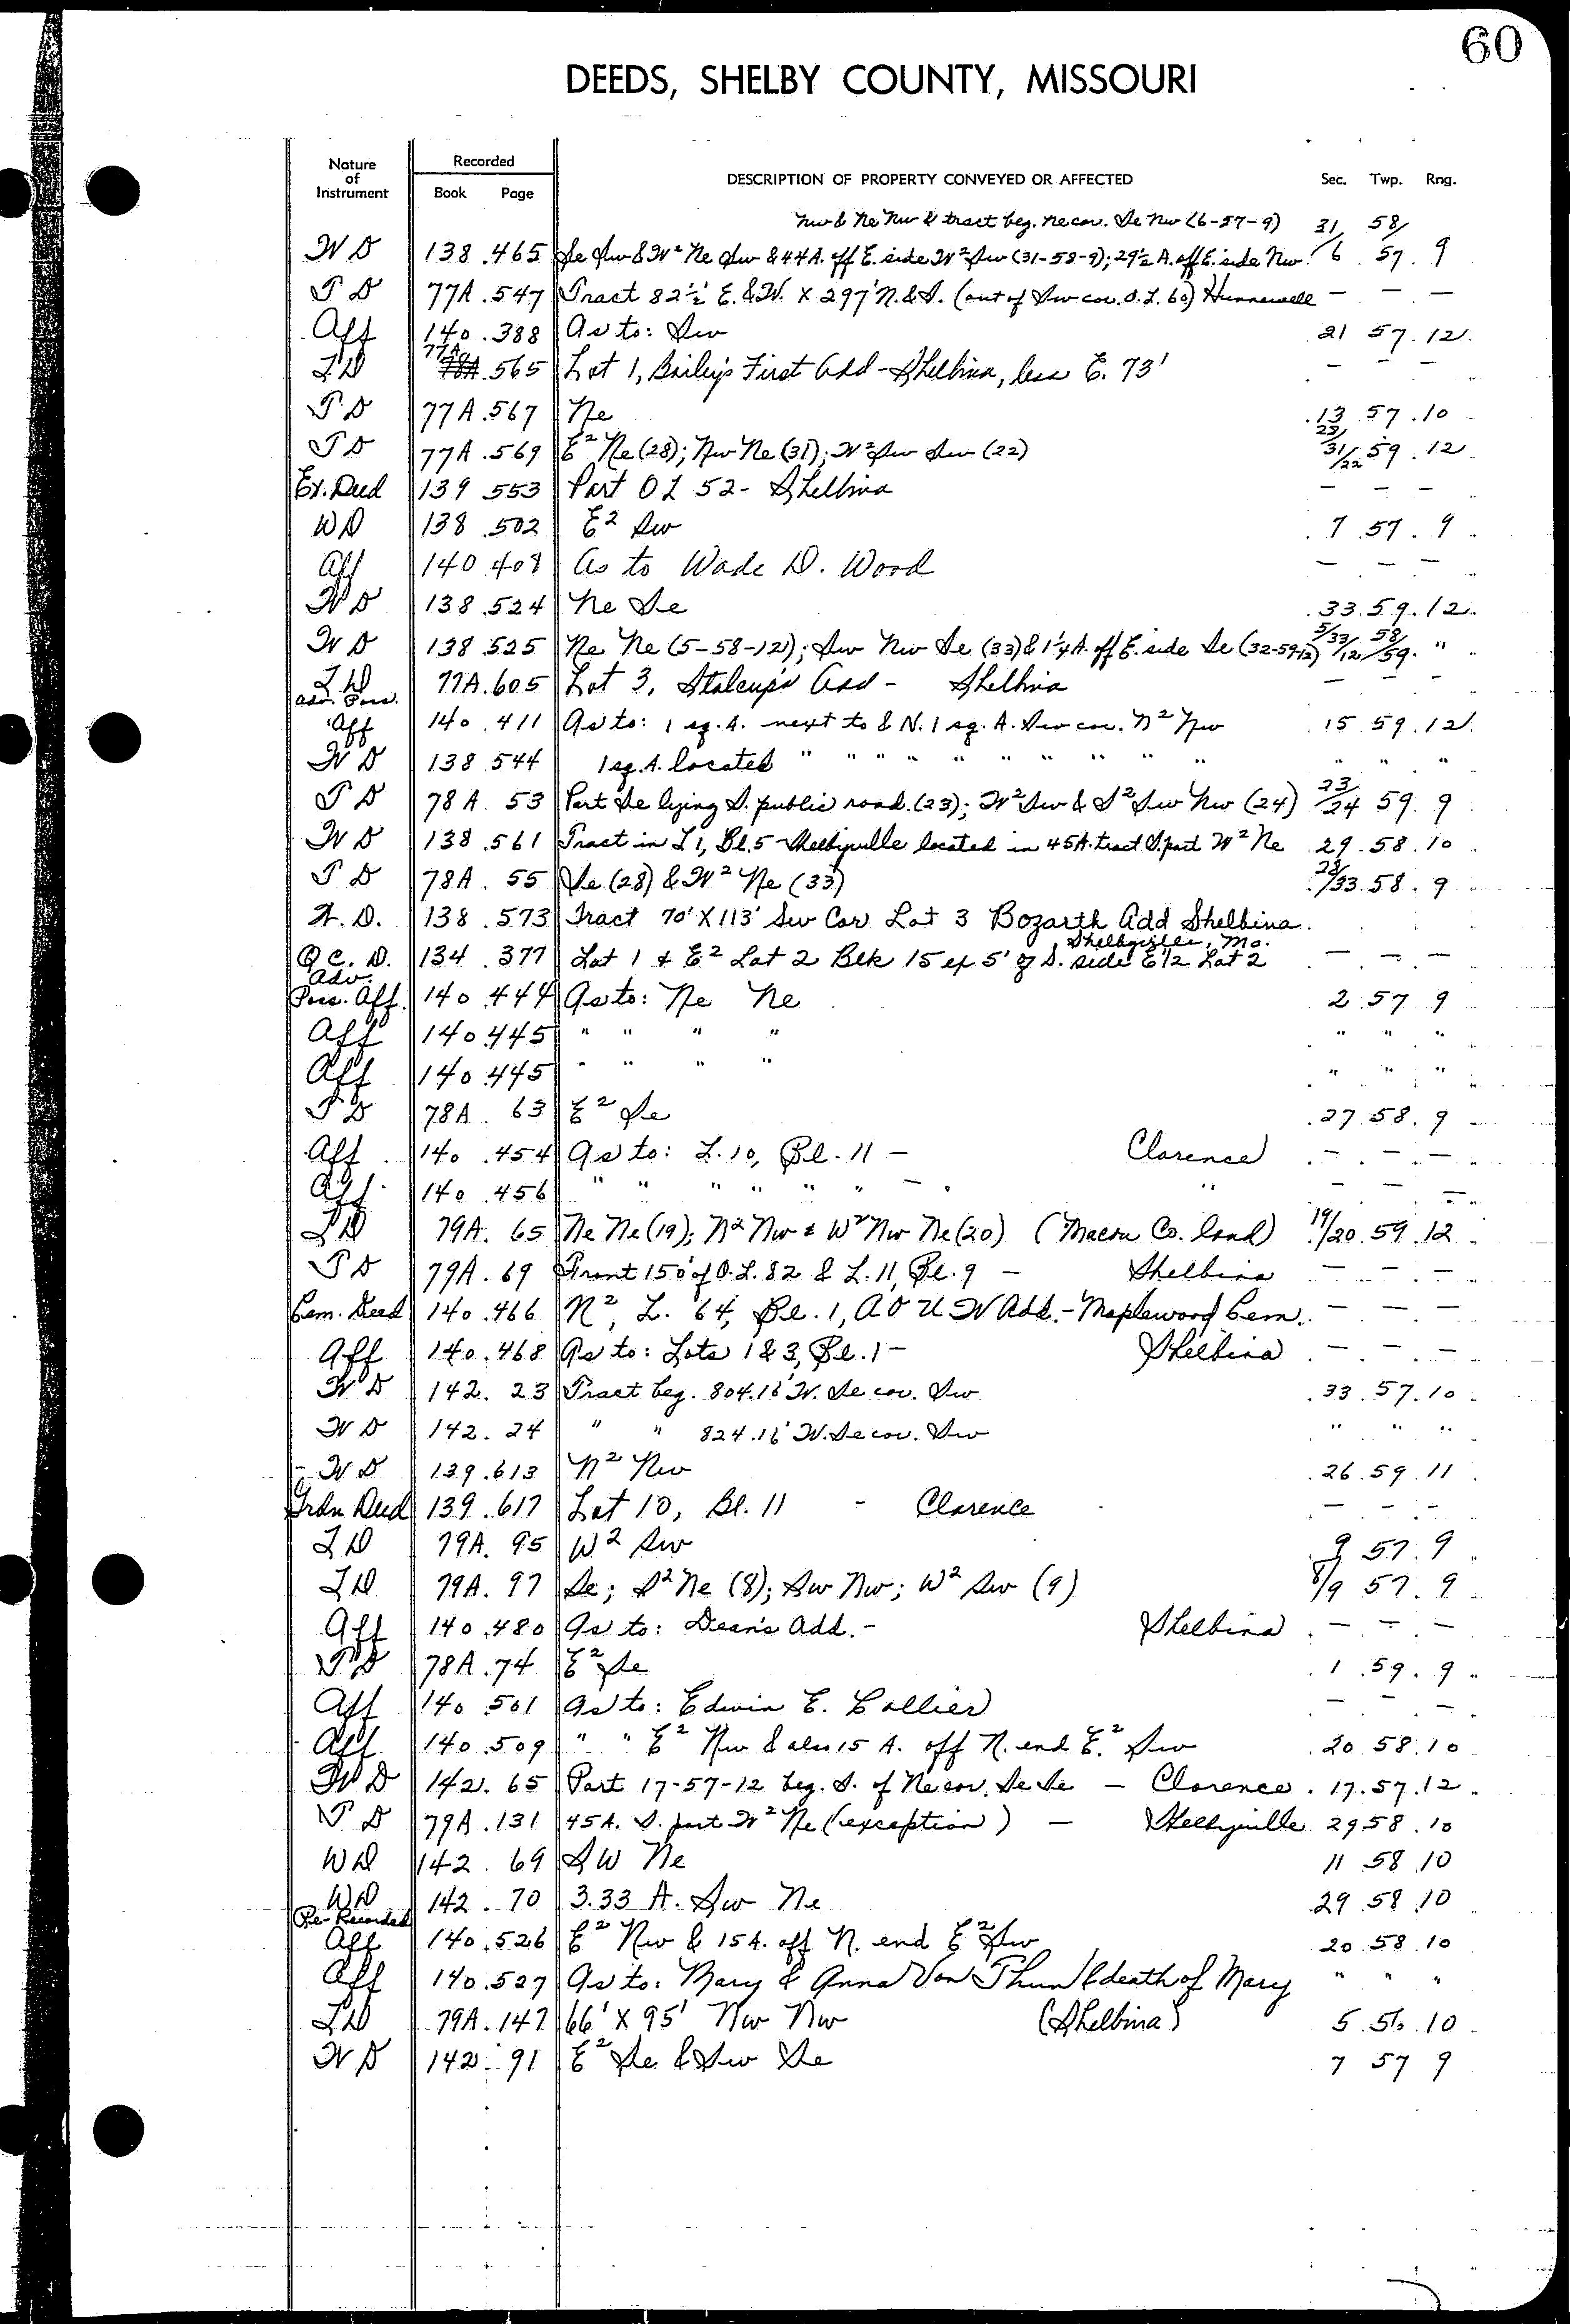 60
DEEDS, SHELBY COUNTY, MISSOURI
Nature of Instrument Recorded Book Page DESCRIPTION OF PROPERTY CONVEYED OR AFFECTED Sec. Twp. Rng.
Nw & Ne Nw & tract beg. Ne cor. Se Nw (6-57-9) 31/ 58/
W D 138 465 Se Sw & W² Ne Sw & 44 A. off E. side W² Sw (31-58-9); 29½ A. off E. side Nw 6 57 9
T D 77A 547 Tract 82½' E. & W. X 297' N. & S. (out of Sw cor. O. L. 60) Hunnewell — — —
Aff 140 388 As to: Sw 21 57 12
T D 77A 565 Lot 1, Bailey's First Add - Shelbina, less E. 73' — — —
T D 77A 567 Ne 13 57 10
T D 77A 569 E² Ne (28); Nw Ne (31); W² Sw Sw (22) 31/22 59 12
Ex. Deed 139 553 Part O L 52 - Shelbina — — —
W D 138 502 E² Sw 7 57 9
Aff 140 408 As to Wade D. Wood — — —
W D 138 524 Ne Se 33 59 12
W D 138 525 Ne Ne (5-58-12); Sw Nw Se (33) & 1¼ A. off E. side Se (32-59-12) 5/33/ 58/59 "
T D 77A 605 Lot 3, Stalcup's Add - Shelbina — — —
Adv. Poss. Aff 140 411 As to: 1 sq. A. next to & N. 1 sq. A. Sw cor. N² Nw 15 59 12
W D 138 544 1 sq. A. located " " " " " " " " " " " "
T D 78A 53 Part Se lying S. public road (23); W² Sw & S² Sw Nw (24) 23/24 59 9
W D 138 561 Tract in L 1, Bl. 5 - Shelbyville located in 45 A. tract S. part W² Ne 29 58 10
T D 78A 55 Se (28) & W² Ne (33) 28/33 58 9
W. D. 138 573 Tract 70' X 113' Sw Cor Lot 3 Bozarth Add Shelbina
Shelbyville, Mo.
Q C. D. 134 377 Lot 1 & E² Lot 2 Blk 15 ex 5' of S. side E 1/2 Lot 2 — — —
Adv. Poss. Aff 140 444 As to: Ne Ne 2 57 9
Aff 140 445 " " " " " " "
Aff 140 445 " " " " " " "
T D 78A 63 E² Se 27 58 9
Aff 140 454 As to: L. 10, Bl. 11 — Clarence — — —
Aff 140 456 " " " " " " — " — — —
T D 79A 65 Ne Ne (19); N² Nw & W² Nw Ne (20) (Macon Co. land) 19/20 59 12
T D 79A 69 Front 150' of O. L. 82 & L. 11, Bl. 9 — Shelbina — — —
Cem. Deed 140 466 N², L. 64, Bl. 1, A O U W Add. - Maplewood Cem. — — —
Aff 140 468 As to: Lots 1 & 3, Bl. 1 — Shelbina — — —
W D 142 23 Tract beg. 804.16' W. Se cor. Sw 33 57 10
W D 142 24 " " 824.16' W. Se cor. Sw " " "
W D 139 613 N² Nw 26 59 11
Grdn Deed 139 617 Lot 10, Bl. 11 - Clarence — — —
T D 79A 95 W² Sw 9 57 9
T D 79A 97 Se; S² Ne (8); Sw Nw; W² Sw (9) 8/9 57 9
Aff 140 480 As to: Dean's Add. — Shelbina — — —
T D 78A 74 E² Se 1 59 9
Aff 140 501 As to: Edwin E. Collier — — —
Aff 140 509 " " E² Nw & also 15 A. off N. end E² Sw 20 58 10
W D 142 65 Part 17-57-12 beg. S. of Ne cor. Se Se — Clarence 17 57 12
T D 79A 131 45 A. S. part W² Ne (exception) — Shelbyville 29 58 10
W D 142 69 SW Ne 11 58 10
W D 142 70 3.33 A. Sw Ne 29 58 10
Re-Recorded Aff 140 526 E² Nw & 15 A. off N. end E² Sw 20 58 10
Aff 140 527 As to: Mary & Anna Von Thun & death of Mary " " "
T D 79A 147 66' X 95' Nw Nw (Shelbina) 5 56 10
W D 142 91 E² Se & Sw Se 7 57 9